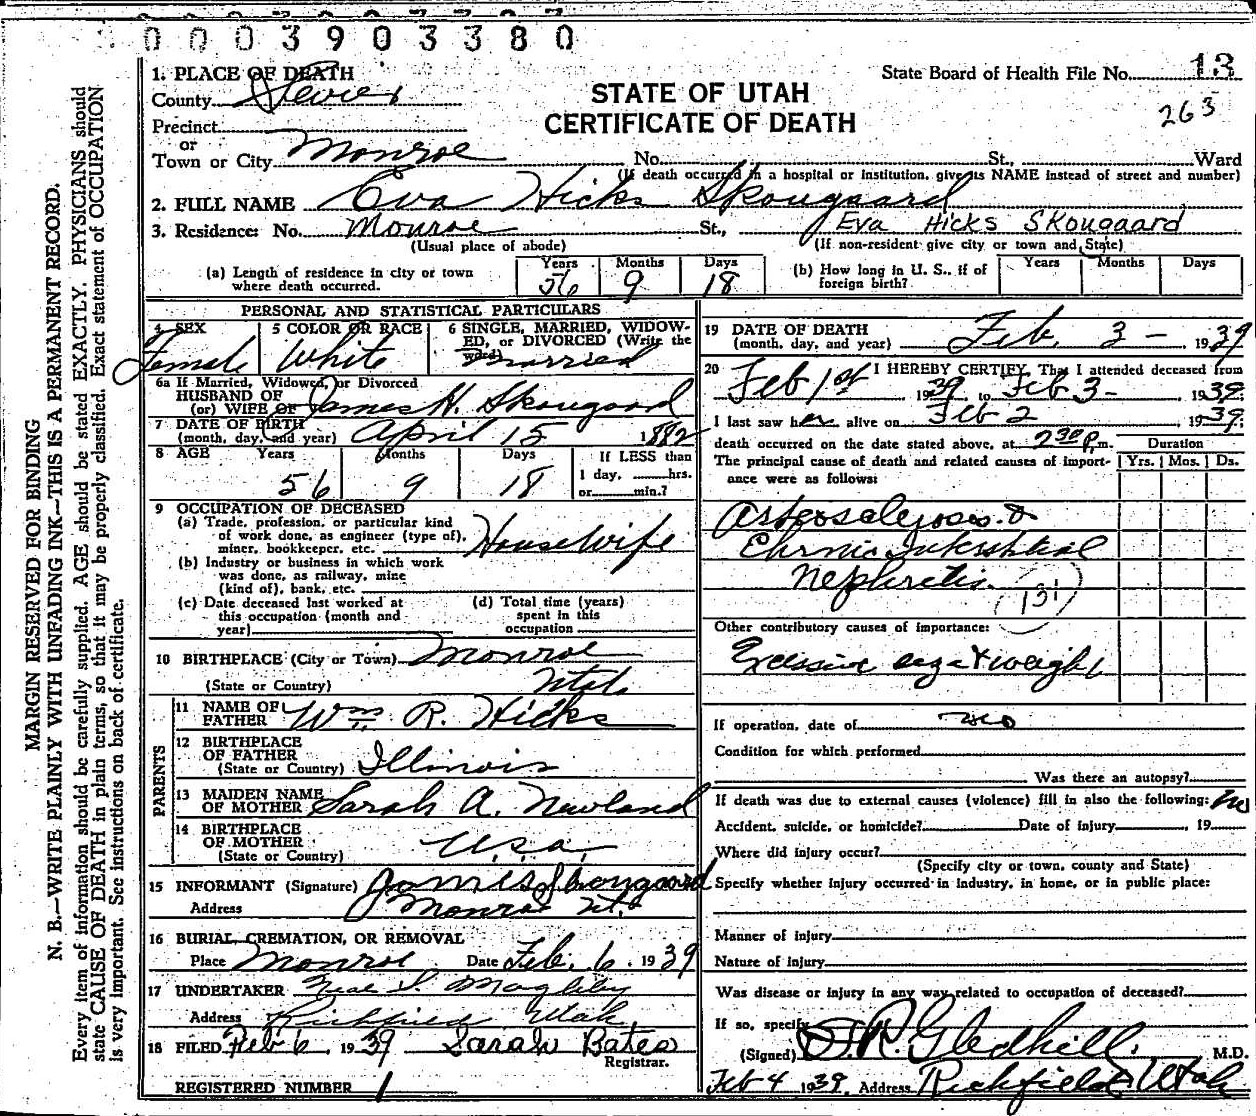 0003903380
1. PLACE OF DEATH
County Sevier
Precinct
or
Town or City Monroe
STATE OF UTAH
CERTIFICATE OF DEATH
State Board of Health File No. 13
263
No. St., Ward
(If death occurred in a hospital or institution, give its NAME instead of street and number)
2. FULL NAME Eva Hicks Skougaard
3. Residence: No. Monroe St., Eva Hicks Skougaard
(Usual place of abode) (If non-resident give city or town and State)
(a) Length of residence in city or town where death occurred. Years 56 Months 9 Days 18
(b) How long in U. S., if of foreign birth? Years Months Days
PERSONAL AND STATISTICAL PARTICULARS
4 SEX 5 COLOR OR RACE 6 SINGLE, MARRIED, WIDOW-
ED, or DIVORCED (Write the
word)
Female White Married
6a If Married, Widowed, or Divorced
HUSBAND OF
(or) WIFE OF James H. Skougaard
7 DATE OF BIRTH
(month, day, and year) April 15 1882
8 AGE Years Months Days If LESS than
1 day, hrs.
or min.?
56 9 18
9 OCCUPATION OF DECEASED
(a) Trade, profession, or particular kind
of work done, as engineer (type of),
miner, bookkeeper, etc. Housewife
(b) Industry or business in which work
was done, as railway, mine
(kind of), bank, etc.
(c) Date deceased last worked at
this occupation (month and
year)
(d) Total time (years)
spent in this
occupation
10 BIRTHPLACE (City or Town) Monroe
(State or Country) Utah
PARENTS
11 NAME OF
FATHER Wm R. Hicks
12 BIRTHPLACE
OF FATHER
(State or Country) Illinois
13 MAIDEN NAME
OF MOTHER Sarah A. Newland
14 BIRTHPLACE
OF MOTHER
(State or Country) U.S.A.
15 INFORMANT (Signature) James Skougaard
Address Monroe Ut.
16 BURIAL, CREMATION, OR REMOVAL
Place Monroe Date Feb. 6, 1939
17 UNDERTAKER Magleby
Address Richfield Utah
18 FILED Feb 6, 1939 Sarah Bates
Registrar.
REGISTERED NUMBER 1
19 DATE OF DEATH
(month, day, and year) Feb. 3 - 1939
20 I HEREBY CERTIFY, That I attended deceased from
Feb 1st 1939 to Feb 3 - , 1939.
I last saw her alive on Feb 2, 1939.
death occurred on the date stated above, at 2 30 P. m.
Duration
The principal cause of death and related causes of import-
ance were as follows: Yrs. Mos. Ds.
Chronic Interstitial
Nephretis.
(131)
Other contributory causes of importance:
Excessive weight
If operation, date of no
Condition for which performed
Was there an autopsy?
If death was due to external causes (violence) fill in also the following: no
Accident, suicide, or homicide? Date of injury , 19
Where did injury occur?
(Specify city or town, county and State)
Specify whether injury occurred in industry, in home, or in public place:
Manner of injury
Nature of injury
Was disease or injury in any way related to occupation of deceased?
If so, specify
(Signed) Gledhill M.D.
Feb 4 1939. Address Richfield Utah
MARGIN RESERVED FOR BINDING
N. B.—WRITE PLAINLY WITH UNFADING INK—THIS IS A PERMANENT RECORD.
Every item of information should be carefully supplied. AGE should be stated EXACTLY. PHYSICIANS should
state CAUSE OF DEATH in plain terms, so that it may be properly classified. Exact statement of OCCUPATION
is very important. See instructions on back of certificate.